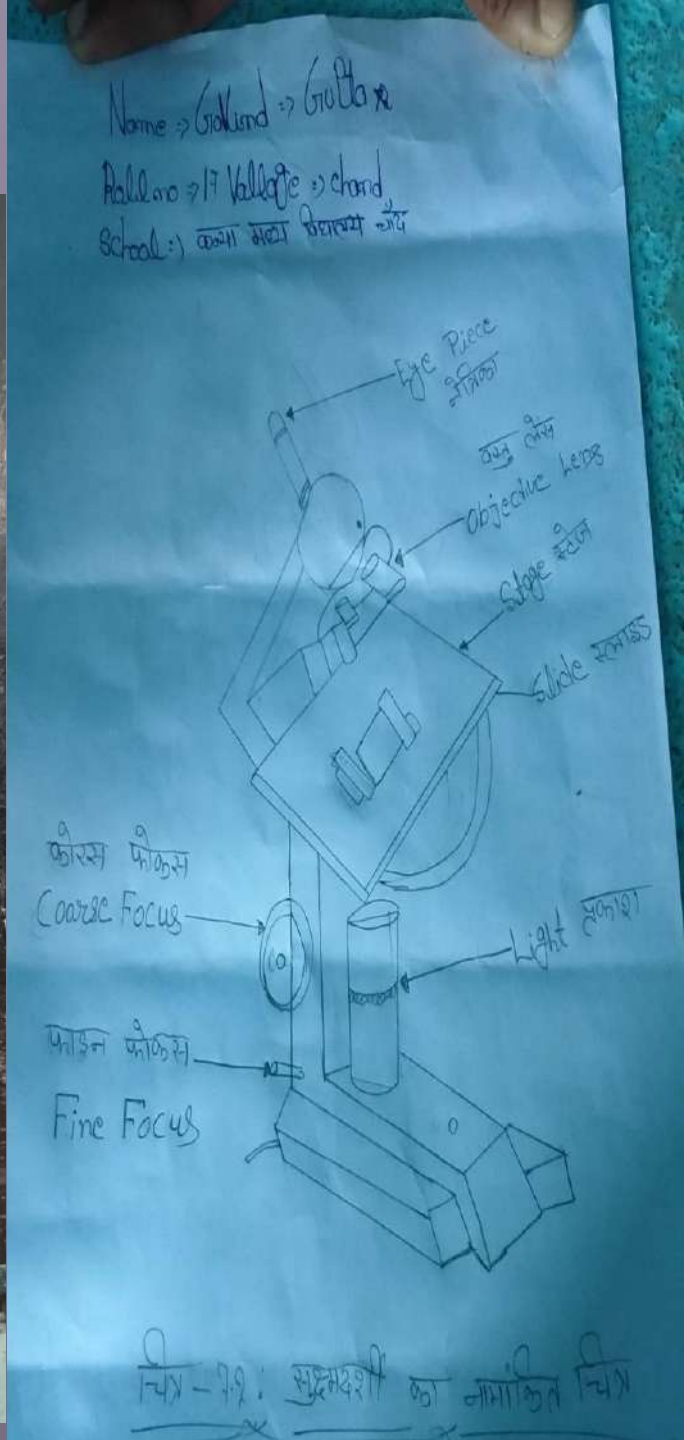 Name => GoVind => GuPta
Roll.no => 17 Vallage => chand
School :) कन्या मध्य विद्यालय चाँद
Eye Piece
नेत्रिका
वस्तु लेंस
Objective Lens
Stage स्टेज
Slide स्लाइड
कोरस फोकस
Coarse Focus
Light प्रकाश
फाइन फोकस
Fine Focus
चित्र - 7.2 : सुक्ष्मदर्शी का नामांकित चित्र